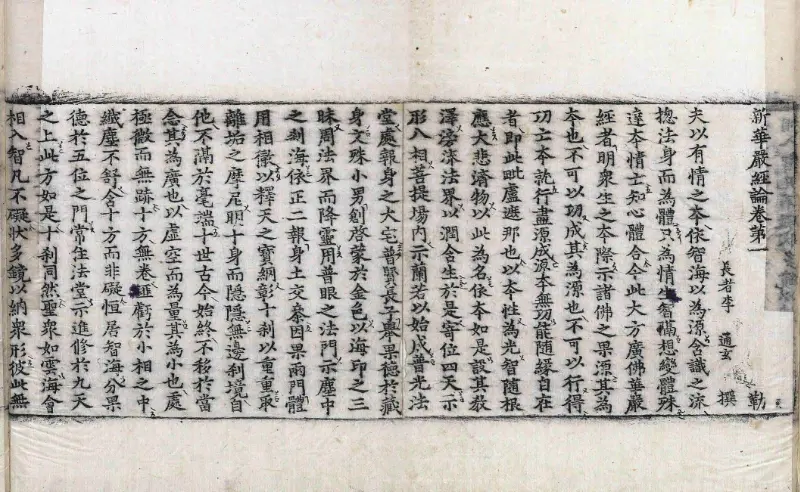 新華嚴經論卷第一 勒
長者李 通玄 撰
夫以有情之夲依智海以為源含識之流
揔法身而為體只為情生智隔想變體殊
達夲情亡知心體合今此大方廣佛華嚴
經者明衆生之夲際示諸佛之果源其為
夲也不可以功成其為源也不可以行得
功亡夲就行盡源成源夲無功能隨緣自在
者即此毗盧遮那也以夲性為光智隨根
應大悲濟物以此為名依夲如是設其教
澤滂流法界以潤含生於是寄位四天示
形八相菩提場内示蘭若以始成普光法
堂處報身之大宅普賢長子舉果德於藏
身文殊小男創啓蒙於金色以海印之三
昧周法界而降靈用普眼之法門示塵中
之刹海依正二報身土交叅因果兩門體
用相徹以釋天之寶網彰十刹以重重取
離垢之摩尼明十身而隱隱無邊刹境自
他不隔於毫端十世古今始終不移於當
念其為廣也以虛空而為量其為小也處
極微而無跡十方無卷匪虧於小相之中
纖塵不舒含十方而非礙恒居智海分果
德於五位之門常住法堂示進修於九天
之上此方如是十刹同然聖衆如雲海會
相入智凡不礙狀多鏡以納衆形彼此無